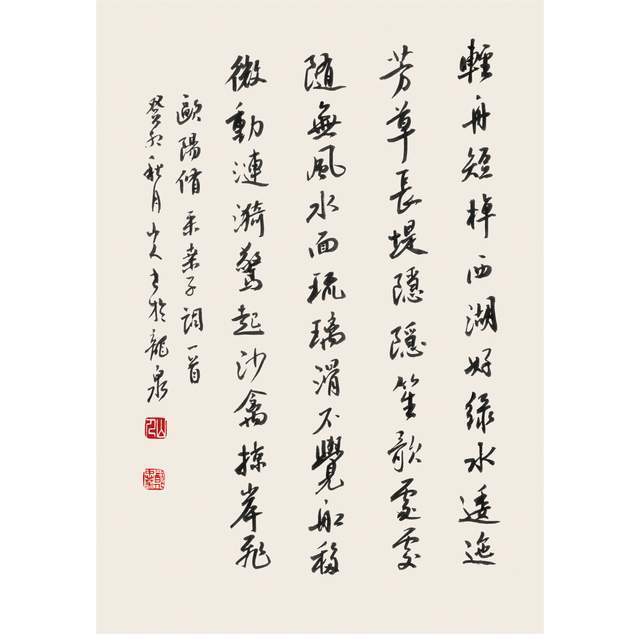 輕舟短棹西湖好綠水逶迤
芳草長堤隱隱笙歌處處
随無風水面琉璃滑不覺船移
微動漣漪驚起沙禽掠岸飛
歐陽脩采桑子詞一首
癸卯秋月山人书於龍泉